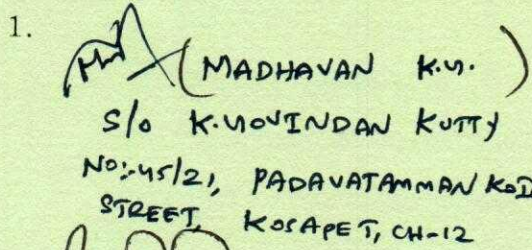 1.
(MADHAVAN K.G.)
S/o K.GOVINDAN KUTTY
No:-45/21, PADAVATAMMAN KOI
STREET, KOSAPET, CH-12